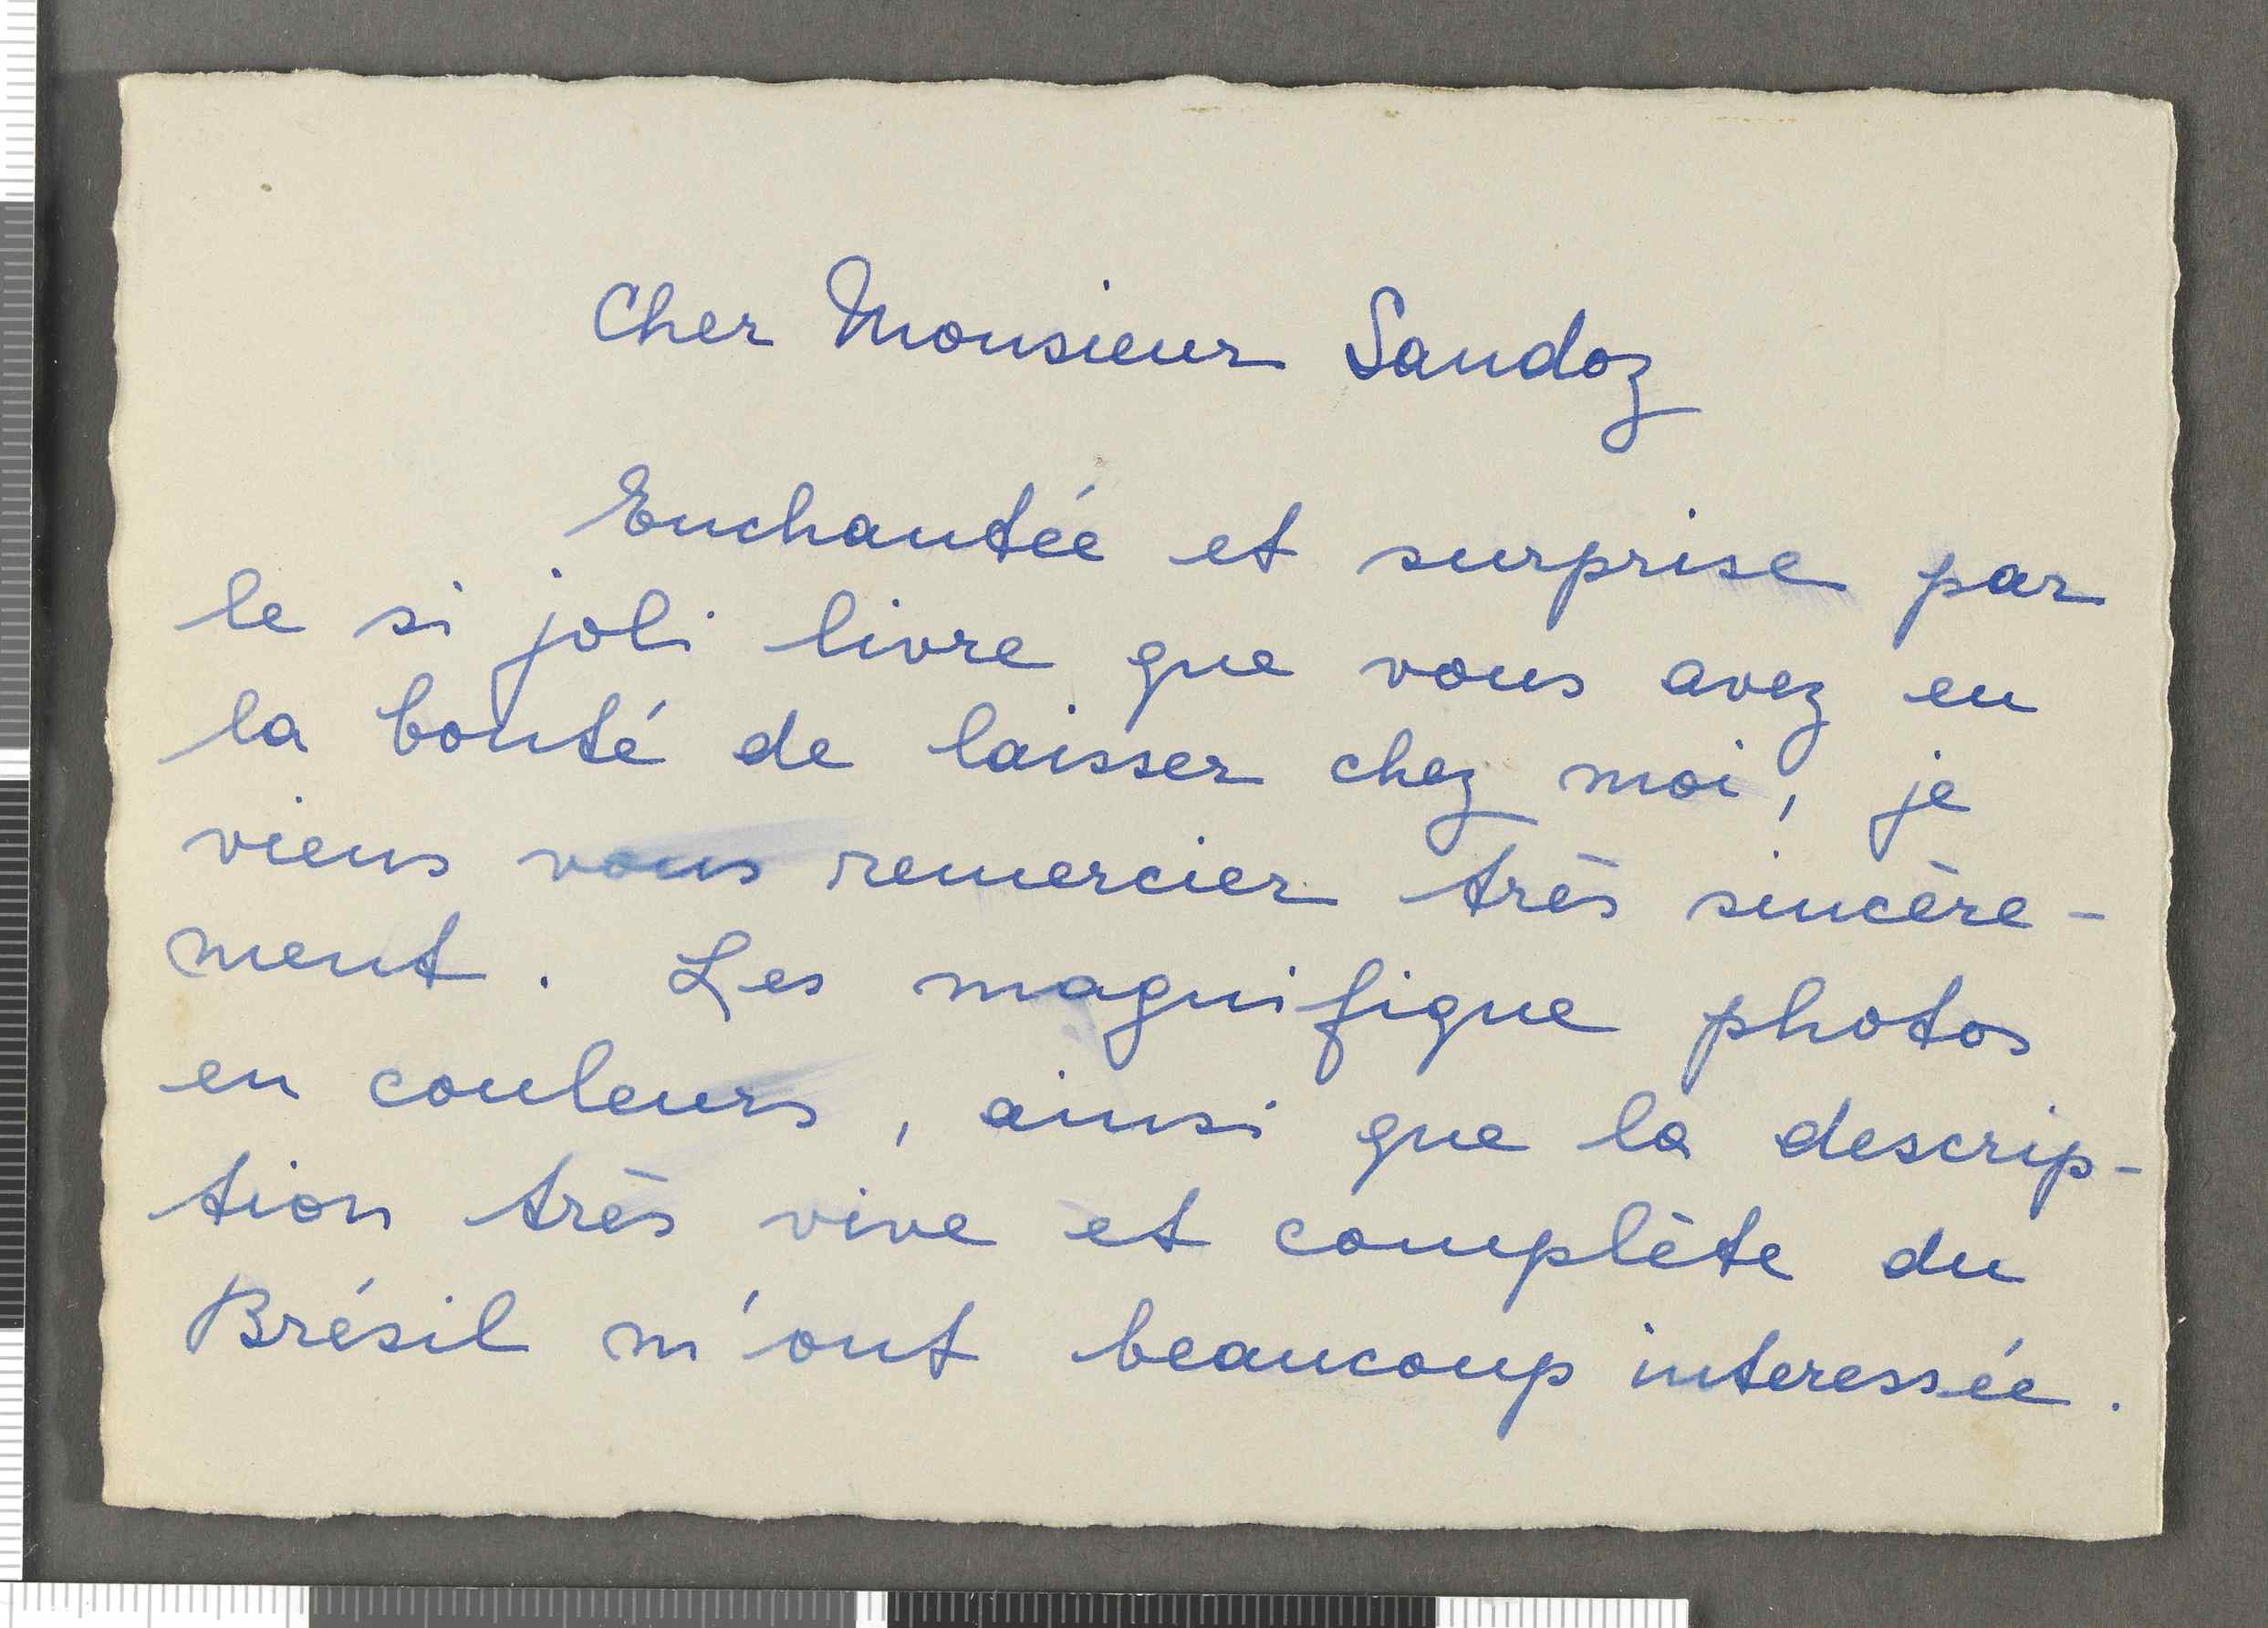 Cher Monsieur Sandoz
Enchantée et surprise par
le si joli livre que vous avez eu
la bonté de laisser chez moi, je
viens vous remercier très sincère-
ment. Les magnifique photos
en couleurs, ainsi que la descrip-
tion très vive et complète du
Brésil m'ont beaucoup interessée.